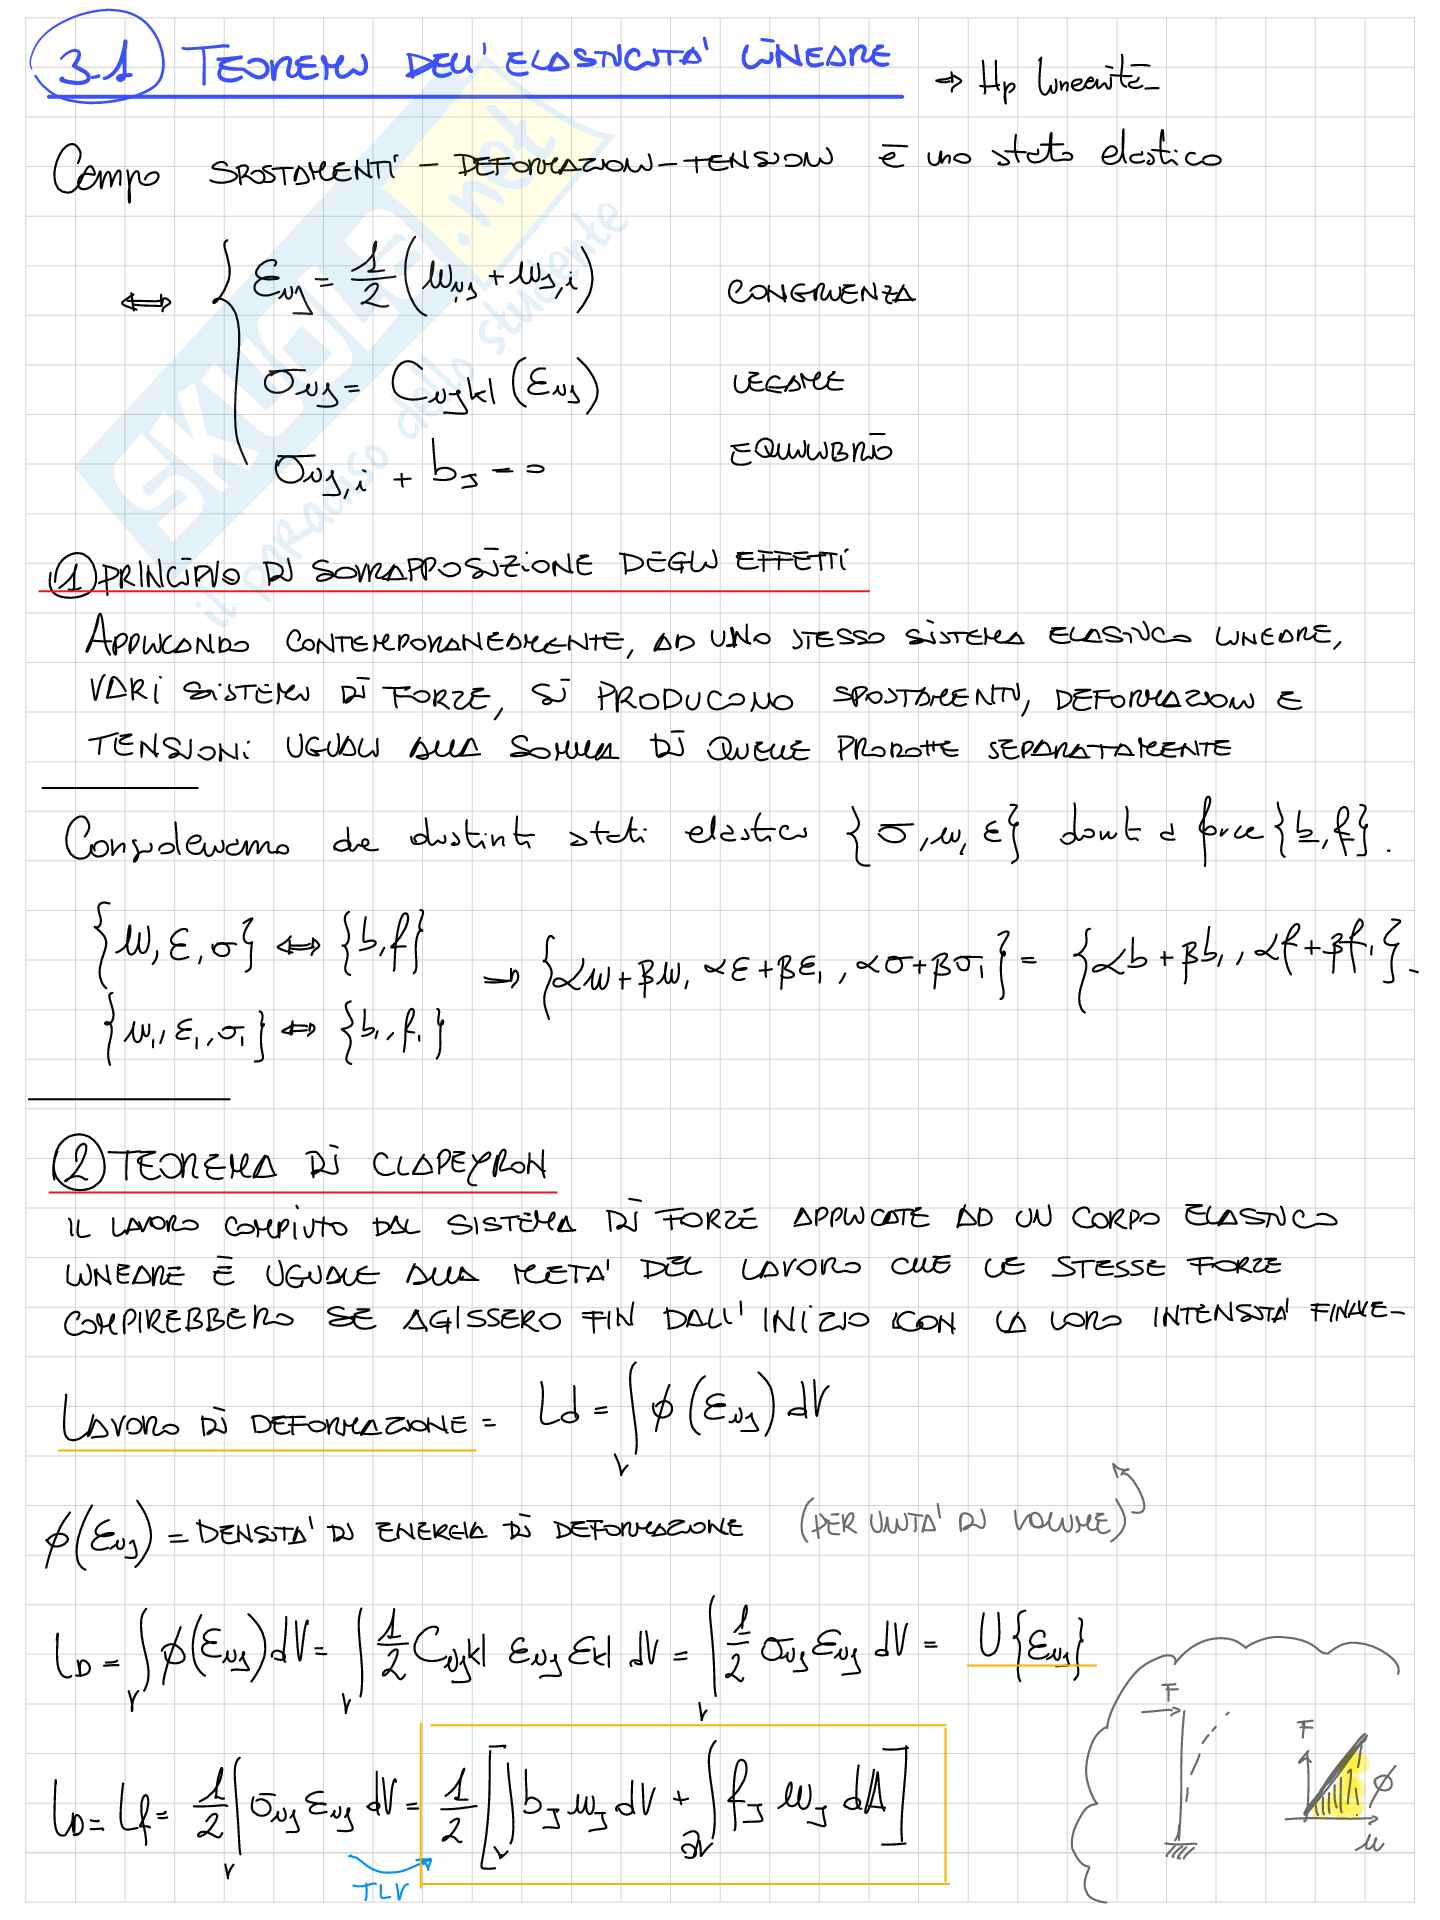 3.1 TEOREMI DELL'ELASTICITA' LINEARE → Hp linearità
Campo SPOSTAMENTI - DEFORMAZIONI - TENSIONI è uno stato elastico
⇔ { εij = 1/2 (ui,j + uj,i) CONGRUENZA
σij = Cijkl (εij) LEGAME
σij,i + bj = 0 EQUILIBRIO
① PRINCIPIO DI SOVRAPPOSIZIONE DEGLI EFFETTI
APPLICANDO CONTEMPORANEAMENTE, AD UNO STESSO SISTEMA ELASTICO LINEARE,
VARI SISTEMI DI FORZE, SI PRODUCONO SPOSTAMENTI, DEFORMAZIONI E
TENSIONI UGUALI ALLA SOMMA DI QUELLE PRODOTTE SEPARATAMENTE
Consideriamo due distinti stati elastici {σ, u, ε} dovuti a forze {b, f}.
{u, ε, σ} ⇔ {b, f}
⇒ {αu + βu1, αε + βε1, ασ + βσ1} = {αb + βb1, αf + βf1}
{u1, ε1, σ1} ⇔ {b1, f1}
② TEOREMA DI CLAPEYRON
IL LAVORO COMPIUTO DAL SISTEMA DI FORZE APPLICATE AD UN CORPO ELASTICO
LINEARE È UGUALE ALLA META' DEL LAVORO CHE LE STESSE FORZE
COMPIREBBERO SE AGISSERO FIN DALL'INIZIO CON LA LORO INTENSITA' FINALE
LAVORO DI DEFORMAZIONE = Ld = ∫V φ(εij) dV
φ(εij) = DENSITA' DI ENERGIA DI DEFORMAZIONE (PER UNITA' DI VOLUME)
LD = ∫V φ(εij) dV = ∫V 1/2 Cijkl εij εkl dV = ∫V 1/2 σij εij dV = U{εij}
LD = Lf = 1/2 ∫V σij εij dV = 1/2 [∫V bj uj dV + ∫∂V fj uj dA]
TLV
F
F
φ
u
SKUOLA.net
il paradiso dello studente